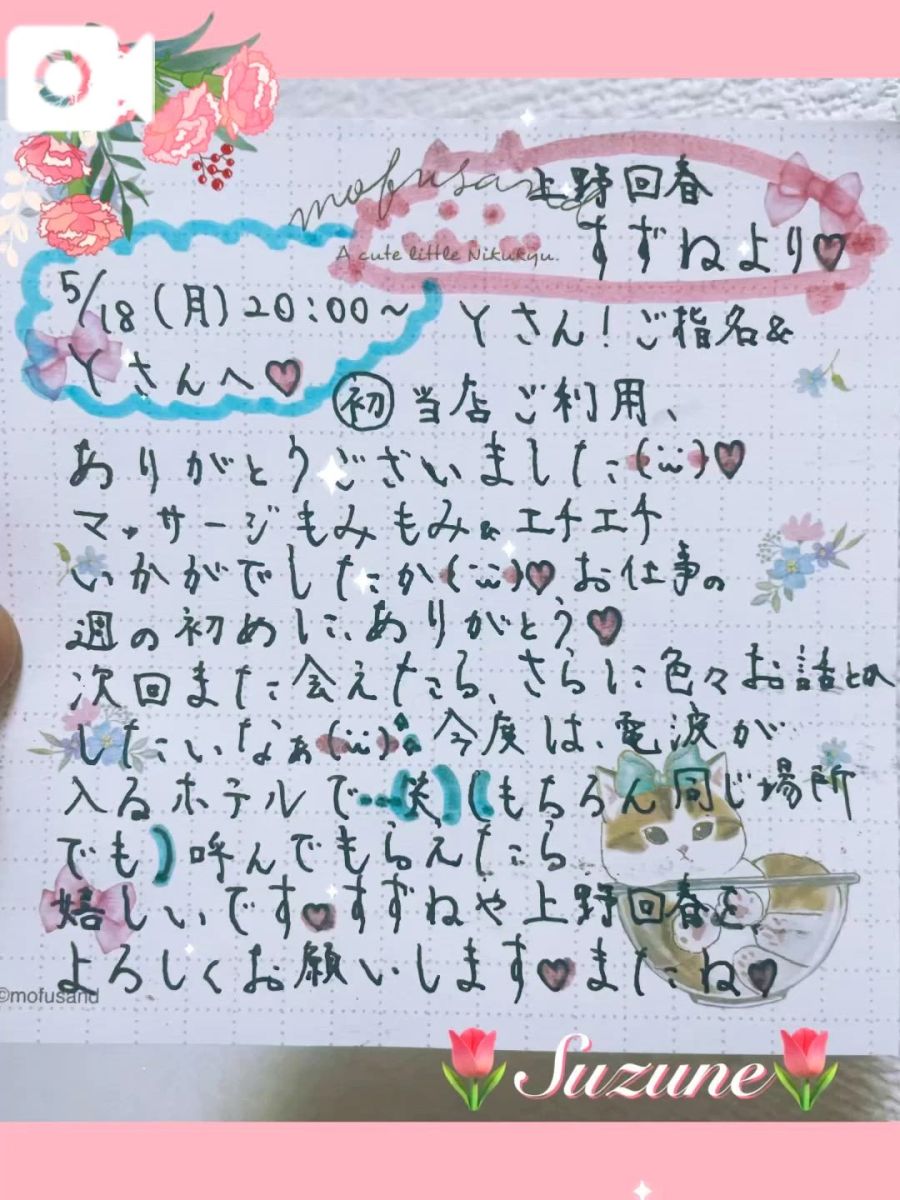 mofusand
上野回春
すずねより♡
A cute little Nikukyu.
5/18(月)20:00～
Yさんへ♡
Yさん!ご指名&
初 当店ご利用、
ありがとうございました(¨̮)♡
マッサージもみもみ&エチエチ
いかがでしたか(¨̮)♡お仕事の
週の初めに、ありがとう♡
次回また会えたら、さらに色々お話とか
したいなぁ(¨̮)今度は、電波が
入るホテルで…(笑)(もちろん同じ場所
でも)呼んでもらえたら
嬉しいです♡すずねや上野回春を、
よろしくお願いします♡またね♡
©mofusand
Suzune